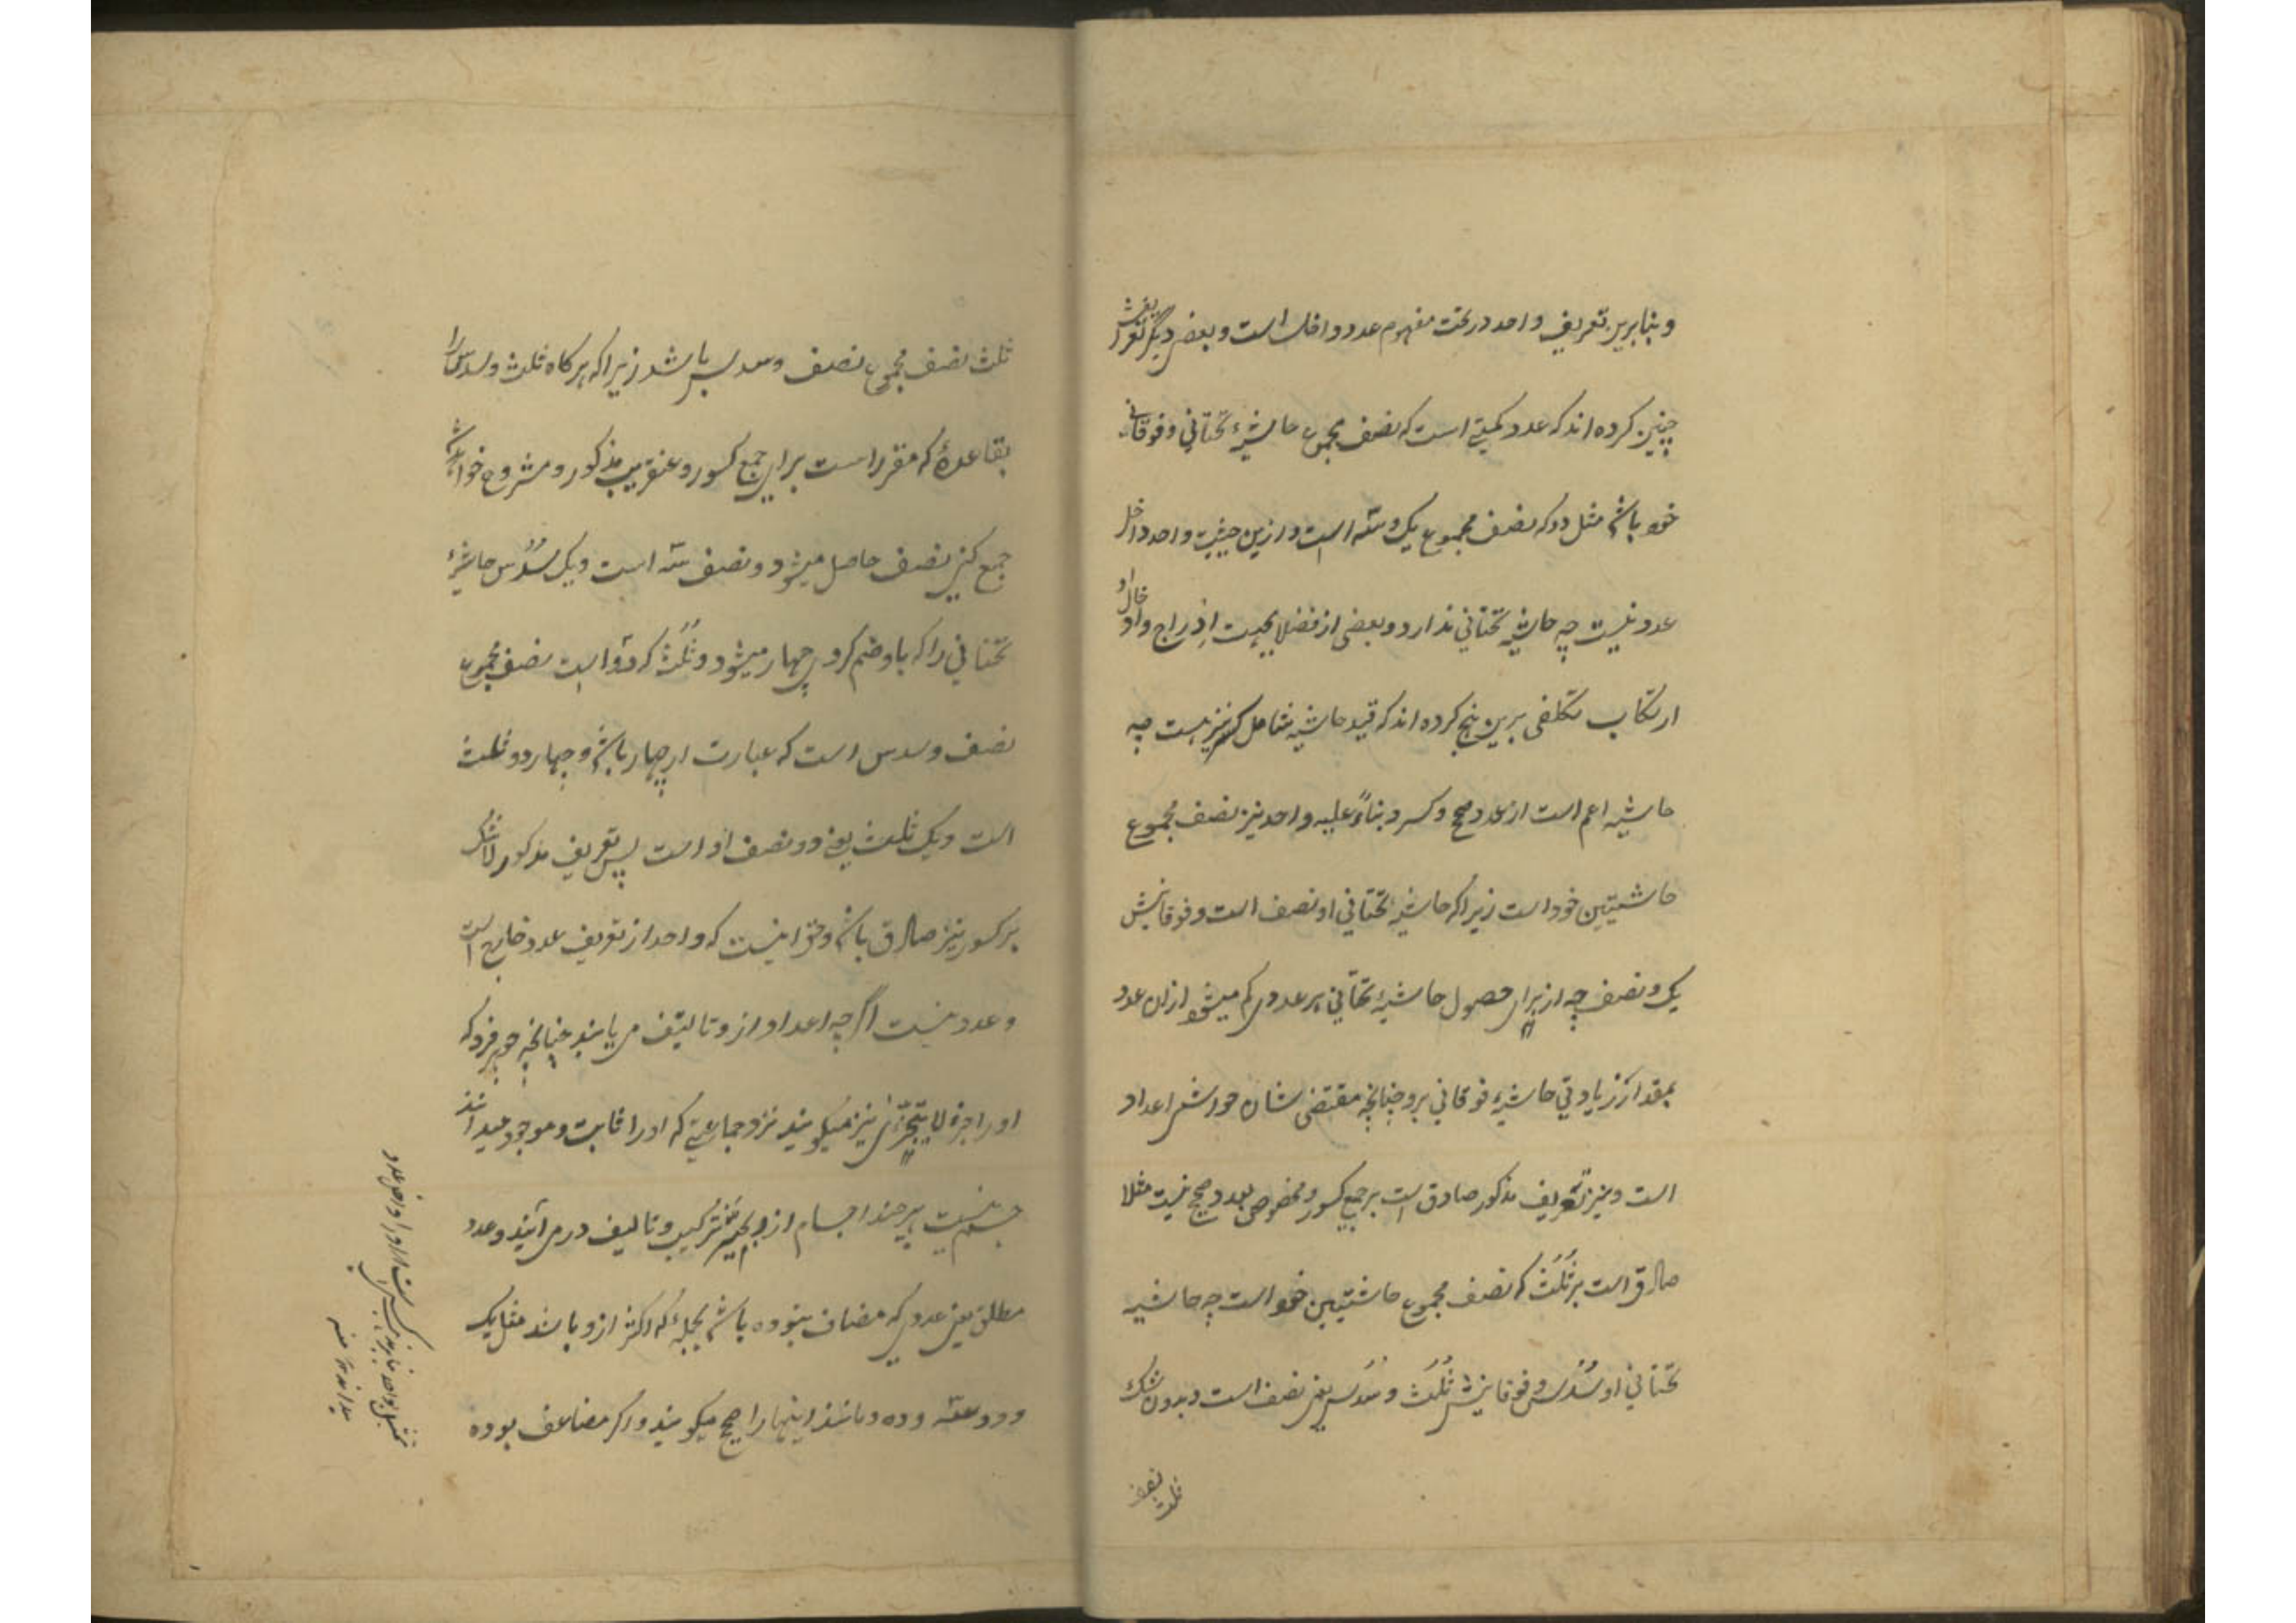 و بنابرین تعریف واحد در تحت مفهوم عدد داخل است و بعضی دیگر تعریفش را
چنین کرده اند که عدد کمیتی است که نصف مجموع حاشیهٔ تحتانی و فوقانی
خود باشد مثل دو که نصف مجموع یک و سه است و ازین حیثیت واحد داخل
عدد نیست چه حاشیه تحتانی ندارد و بعضی از فضلا بجهت اندراج و ادخال او
ارتکاب تکلفی برین نهج کرده اند که قید حاشیه شامل کسر نیز هست چه
حاشیه اعم است از عدد صحیح و کسر و بناءً علیه واحد نیز نصف مجموع
حاشیتین خود است زیرا که حاشیهٔ تحتانی او نصف است و فوقانیش
یک و نصف چه از برای حصول حاشیهٔ تحتانی هر عددی کم میشود از ان عدد
بمقدار زیادتی حاشیهٔ فوقانی برو چنانچه مقتضی شان حواشی اعداد
است و نیز تعریف مذکور صادق است بر جمیع کسور و مخصوص بعدد صحیح نیست مثلا
صادق است بر ثُلُث که نصف مجموع حاشیتین خود است چه حاشیه
تحتانی او سُدُس و فوقانیش ثُلُث و سُدُس یعنی نصف است و بدون شک
ثلث نصف
ثلث نصف مجموع نصف و سدس باشد زیرا که هرکاه ثلث و سدس را
بقاعدهٔ که مقرر است برای جمع کسور و عنقریب مذکور و مشروح خواهد شد
جمع کنی نصف حاصل میشود و نصف سه است و یک سُدُس حاشیهٔ
تحتانی را که باو ضم کردی چهار میشود و ثُلُث که دو است نصف مجموع
نصف و سدس است که عبارت از چهار باشد و چهار دو ثلث
است و یک ثلث یعنی دو نصف او است پس تعریف مذکور لاشک
بر کسور نیز صادق باشد و حق اینست که واحد از تعریف عدد خارج است
و عدد نیست اگر چه اعداد از و تالیف می یابند چنانچه جوهر فرد که
او را جزء لا یتجزّی نیز میکویند نزد جماعتی که او را ثابت و موجود میدانند
جسم نیست هر چند اجسام از و بهم ترکیب و تالیف در می آیند و عدد
مطلق یعنی عددی که مضاف نبوده باشد بجملهٔ که اکثر ازو باشد مثل یک
و دو و سه و ده و مانند اینها را صحیح میکویند و اکر مضاف بوده